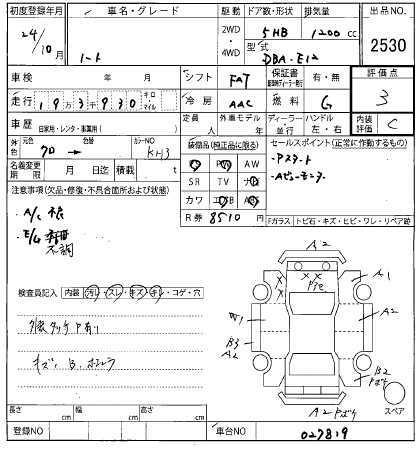 初度登録年月 車名・グレード 駆動 ドア数・形状 排気量 出品NO
24/10月 ノート 2WD・4WD 5HB 1200cc 2530
型式 DBA-E12
車検 年 月 シフト FAT 保証書 有・無 評価点
走行 19万3千930 キロ・マイル 冷房 AAC 燃料 G 3
車歴 自家用・レンタ・事業用( ) 定員 人 外車モデル 年 ディーラー・並行 ハンドル 左・右 内装評価 C
外色 元色 70 → 色替 カラーNO KH3 装備品(純正品に限る) セールスポイント(正常に作動するもの)
PS PW AW ・Pスタート
名義変更期限 月 日迄 積載 t SR TV ナビ ・Aビューモニタ
注意事項(欠品・修復・不具合箇所および状態) カワ エアB ABS
R券 8510円 Fガラス トビ石・キズ・ヒビ・ワレ・リペア跡
・A/C不良
・E/G
不調
A2
A1
A2
W1
B3
A2
B2
Pボケ
A2 Pボケ
スペア
検査員記入 内装 汚レ・スレ・キズ・キレ・コゲ・穴
外装タッチPあり
キズ、B、
長さ cm 幅 cm 高さ cm
登録NO 車台NO 027819